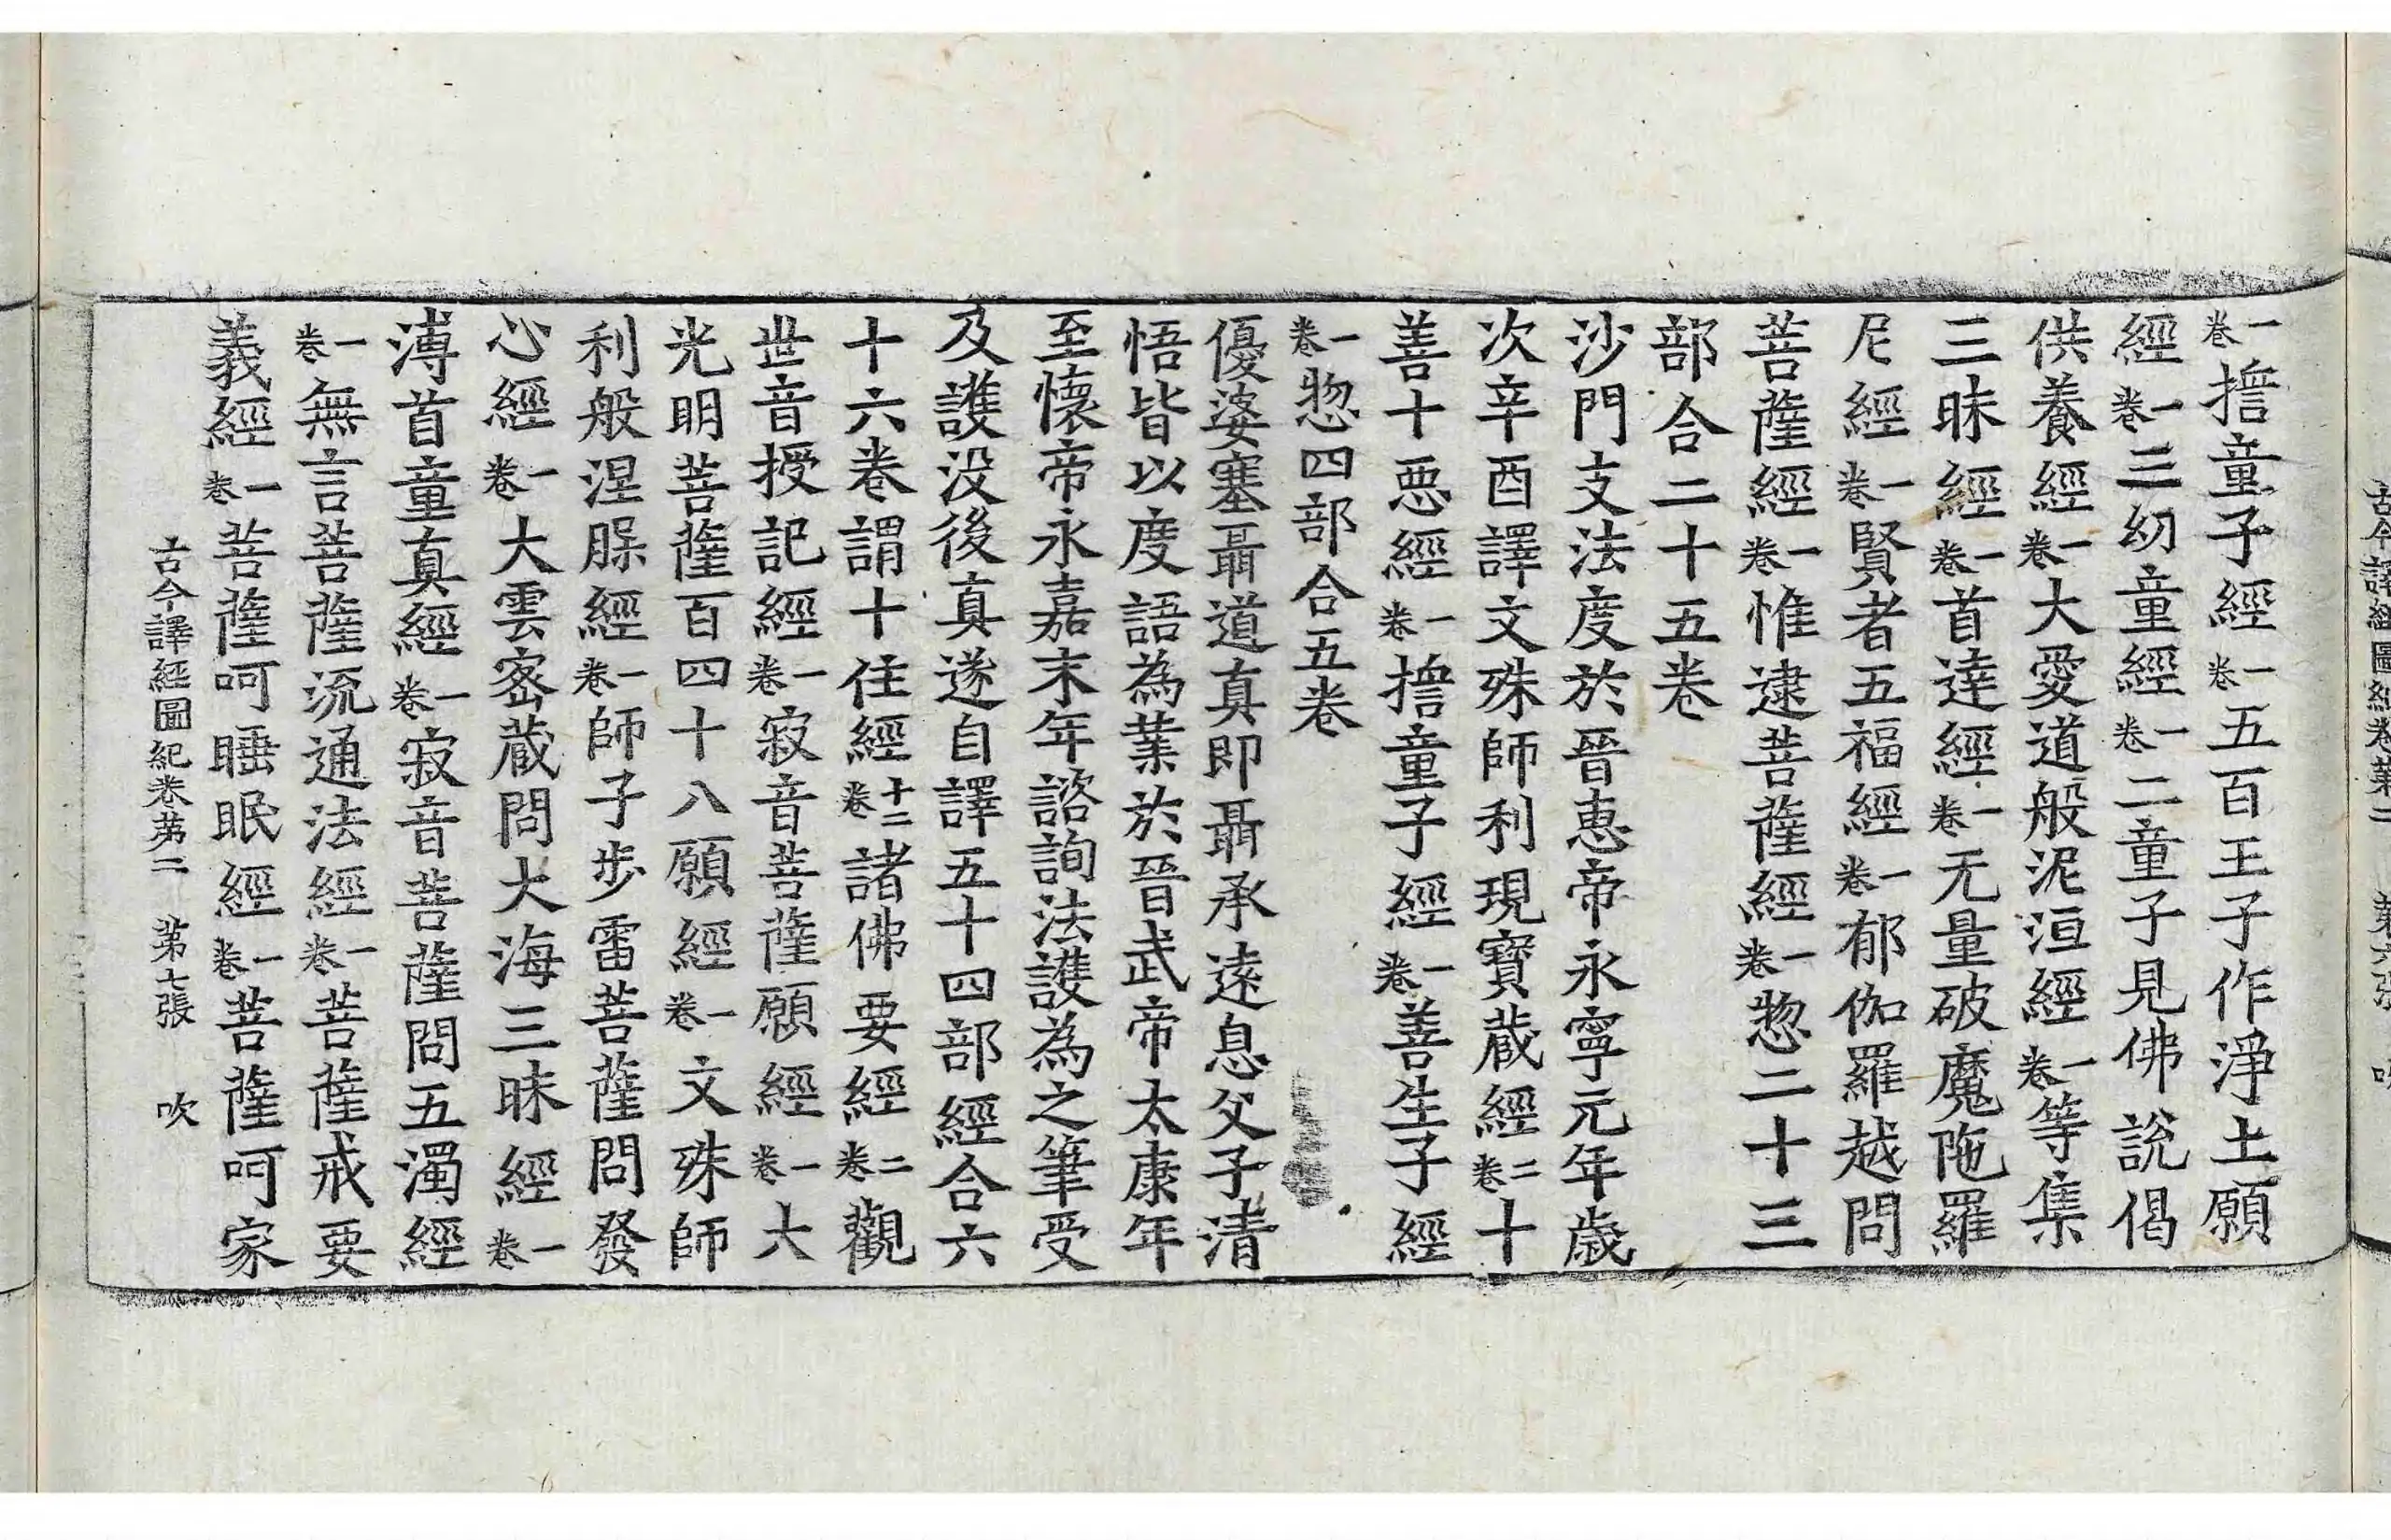 一卷擔童子經一卷五百王子作淨土願
經一卷三幼童經一卷二童子見佛說偈
供養經一卷大愛道般泥洹經一卷等集
三昧經一卷首達經一卷无量破魔陁羅
尼經一卷賢者五福經一卷郁伽羅越問
菩薩經一卷惟逮菩薩經一卷惣二十三
部合二十五卷
沙門支法度於晉惠帝永寧元年歲
次辛酉譯文殊師利現寶蔵經二卷十
善十惡經一卷擔童子經一卷善生子經
一卷惣四部合五卷
優婆塞聶道真即聶承遠息父子清
悟皆以度語為業於晉武帝太康年
至懷帝永嘉末年諮詢法護為之筆受
及護没後真遂自譯五十四部經合六
十六卷謂十住經十二卷諸佛要經二卷觀
世音授記經一卷寂音菩薩願經一卷大
光明菩薩百四十八願經一卷文殊師
利般涅脵經一卷師子步雷菩薩問發
心經一卷大雲密蔵問大海三昧經一卷
溥首童真經一卷寂音菩薩問五濁經
一卷無言菩薩流通法經一卷菩薩戒要
義經一卷菩薩呵睡眠經一卷菩薩呵家
古今譯經圖紀卷苐二 苐七張 吹